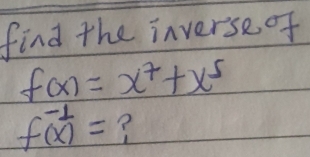 find the inverse of
f(x) = x⁷ + x⁵
f⁻¹(x) = ?